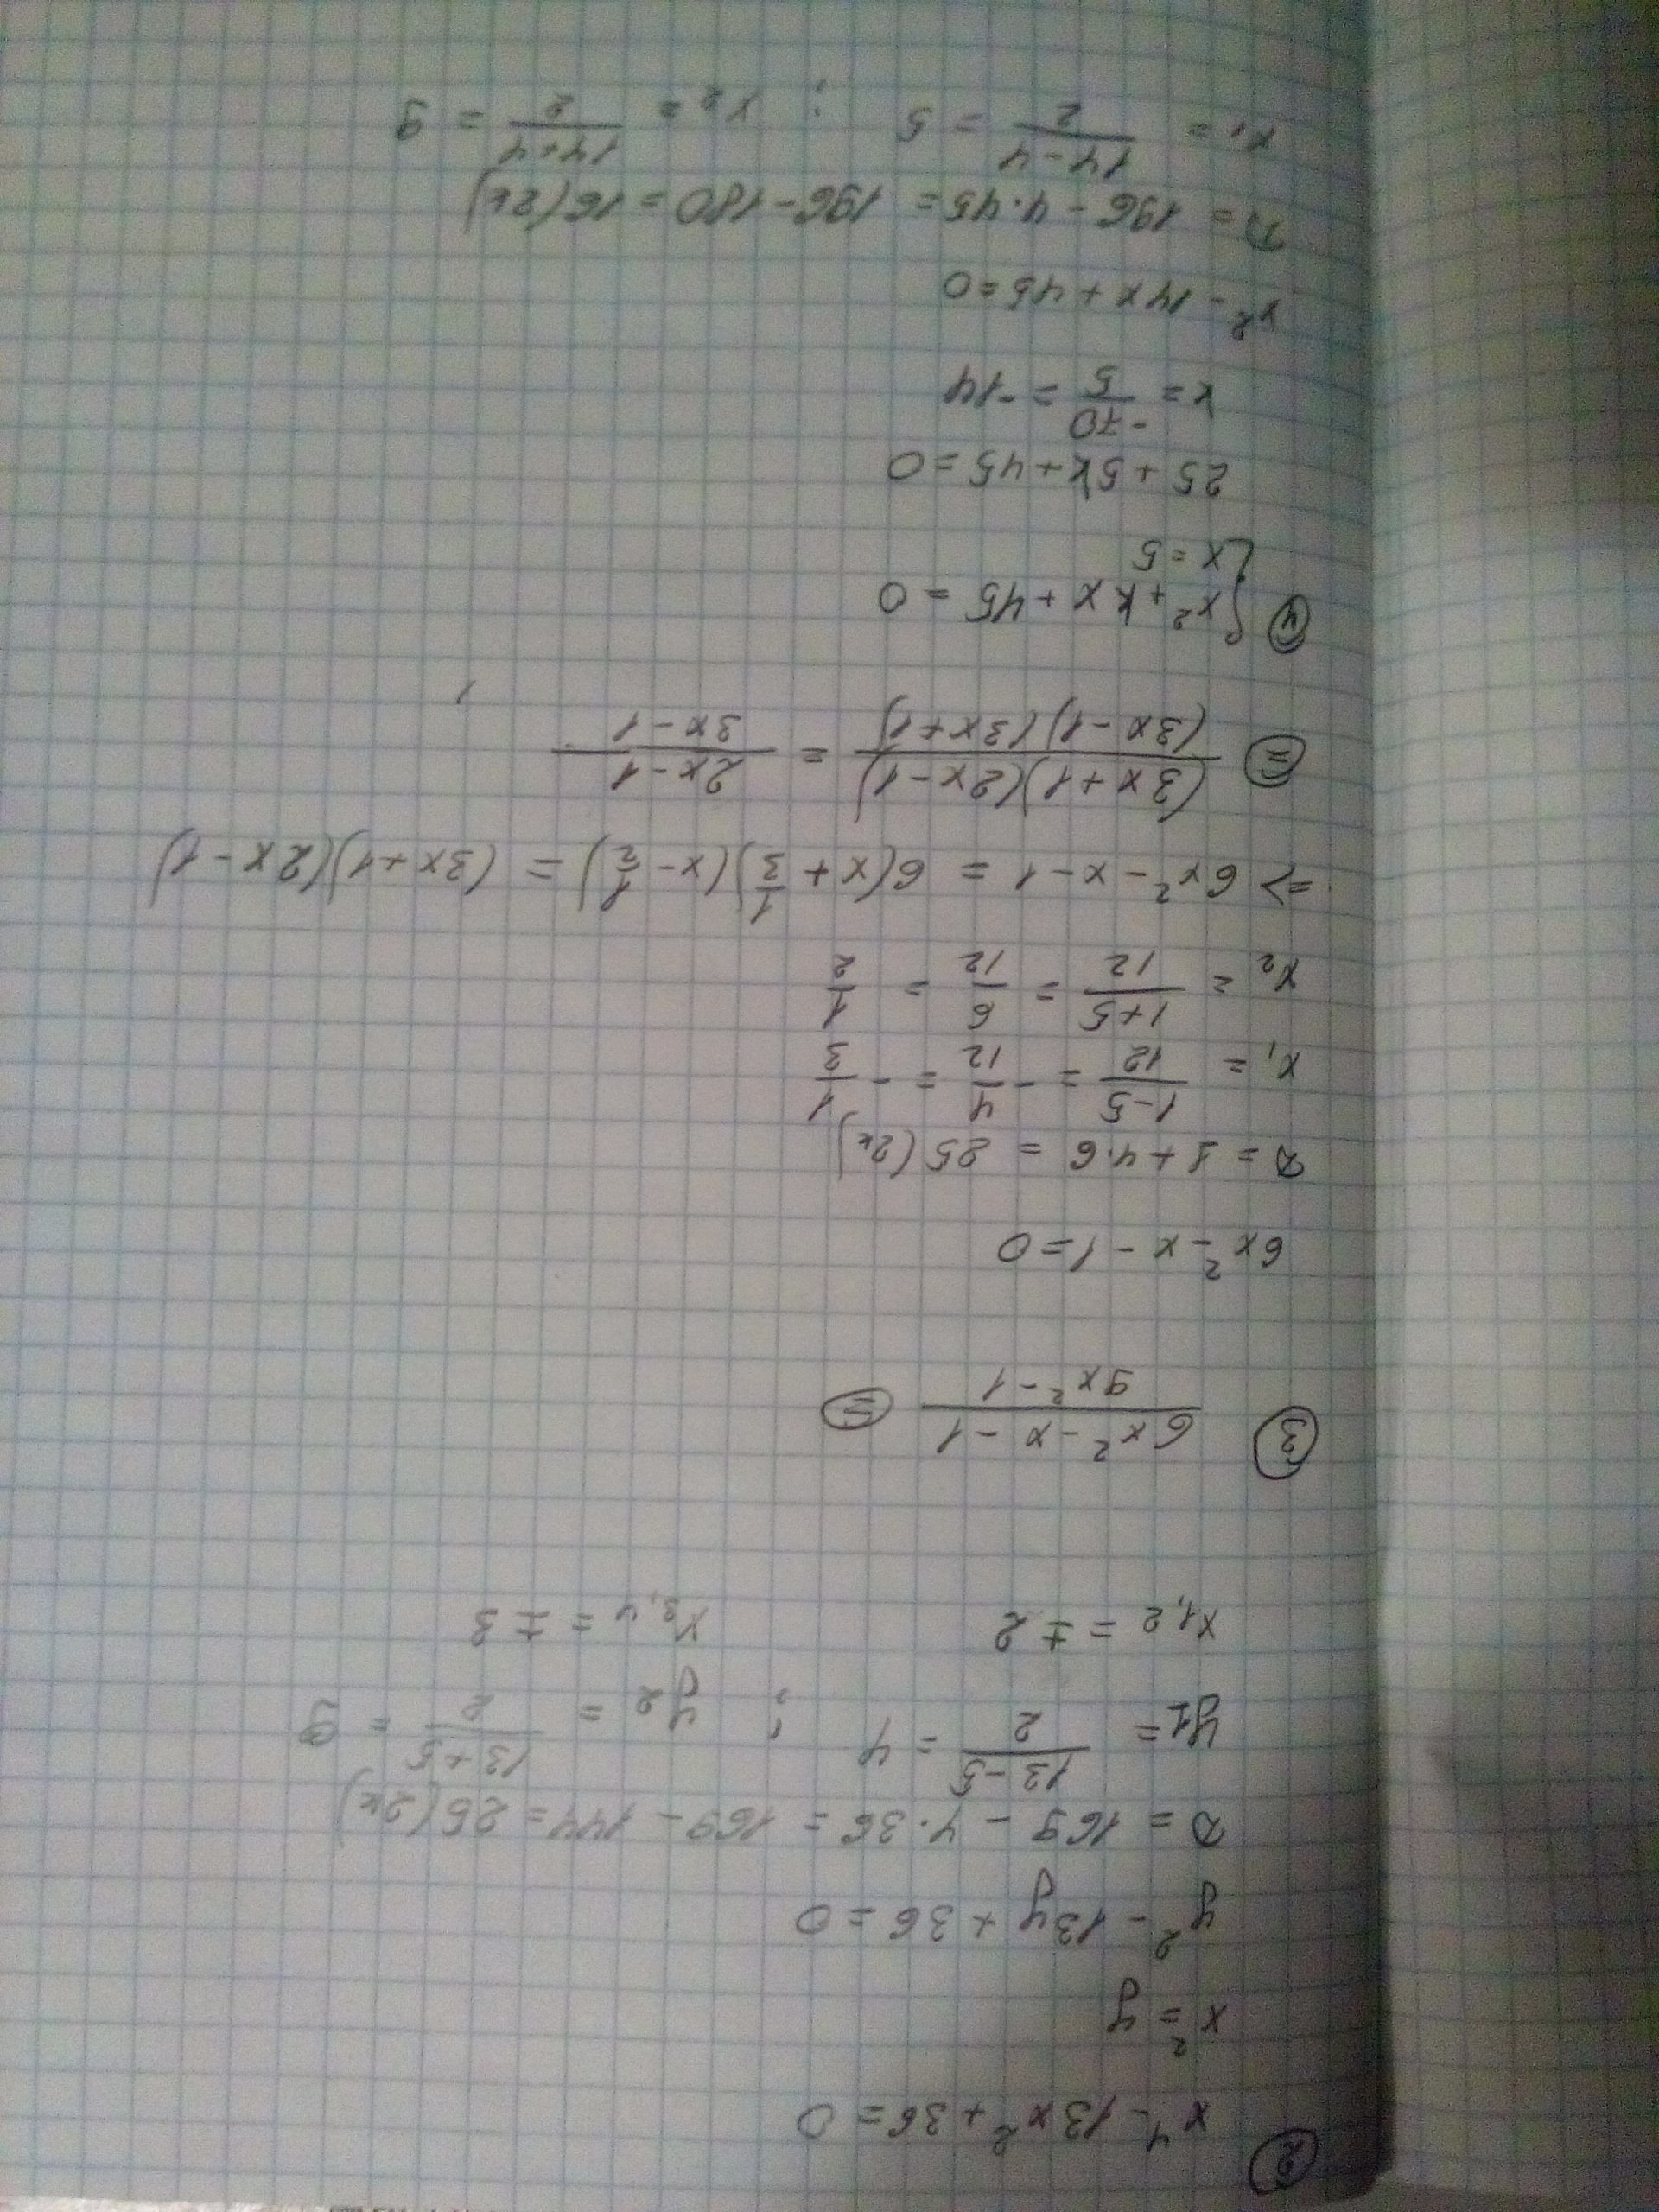 ② x⁴ - 13x² + 36 = 0
x² = y
y² - 13y + 36 = 0
D = 169 - 4·36 = 169 - 144 = 25 (2к)
y₁ = (13-5)/2 = 4 ; y₂ = (13+5)/2 = 9
x₁,₂ = ±2 x₃,₄ = ±3
③ (6x² - x - 1)/(9x² - 1) ⊜
6x² - x - 1 = 0
D = 1 + 4·6 = 25 (2к)
x₁ = (1-5)/12 = -4/12 = -1/3
x₂ = (1+5)/12 = 6/12 = 1/2
=> 6x² - x - 1 = 6(x + 1/3)(x - 1/2) = (3x+1)(2x-1)
⊜ ((3x+1)(2x-1))/((3x-1)(3x+1)) = (2x-1)/(3x-1)
④ { x² + kx + 45 = 0
x = 5
25 + 5k + 45 = 0
k = -70/5 = -14
x² - 14x + 45 = 0
D = 196 - 4·45 = 196 - 180 = 16 (2к)
x₁ = (14-4)/2 = 5 ; x₂ = (14+4)/2 = 9